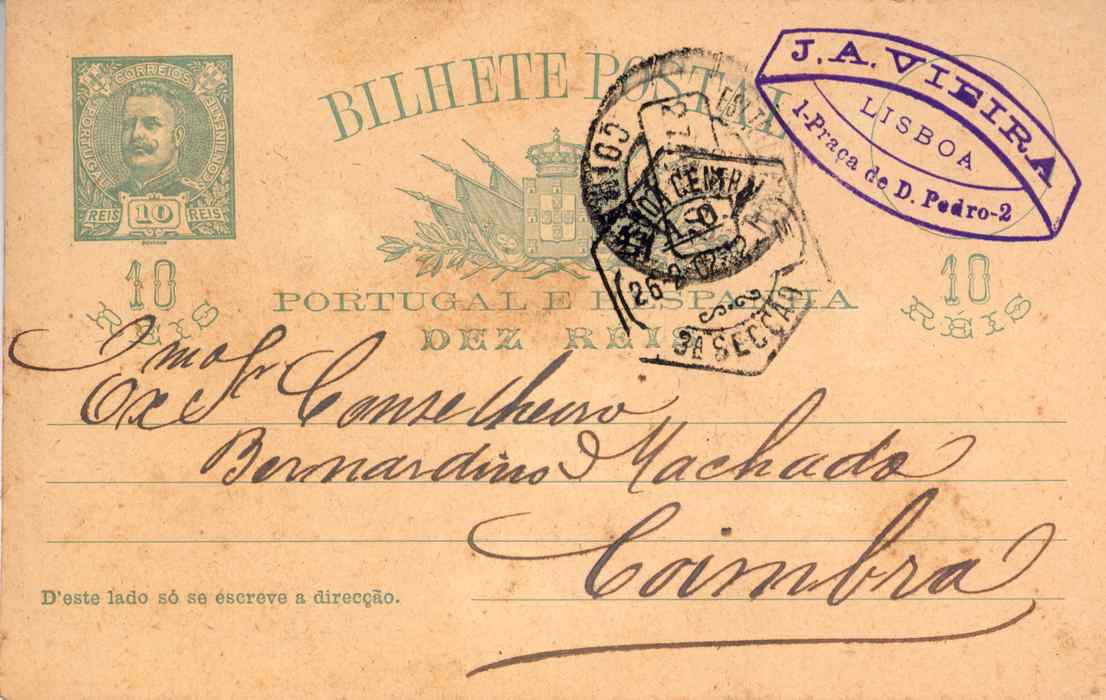 CORREIOS
PORTUGAL
CONTINENTE
REIS 10 REIS
BILHETE POSTAL
J. A. VIEIRA
LISBOA
1-Praça de D. Pedro-2
COIMBRA
CENTRAL
26-2
3A SECÇÃO
10 RÉIS
10 RÉIS
PORTUGAL E HESPANHA
DEZ REIS
Exmo Sr. Conselheiro
Bernardino Machado
Coimbra
D'este lado só se escreve a direcção.